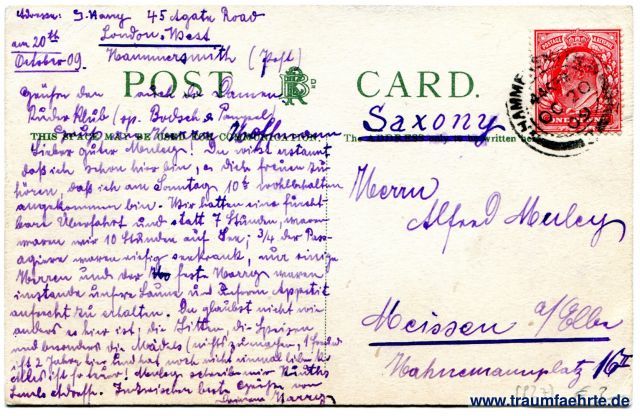 Adresse: G. Harry 45 Agate Road
am 20th London-West
October 09. Hammersmith (Post)
POST CARD.
Grüße den auch die Damen
Ruder Klub (sp. Bodsch &
THIS SPACE MAY BE USED FOR COMMUNICATION.
Hoffmann
Saxony
The ADDRESS only to be written here
HAMMERSMITH
OC 20
09
ONE PENNY
Lieber guter Meuley! Du wirst erstaunt
daß ich schon hier bin, es dich freuen zu
hören, daß ich am Sonntag 10h wohlbehalten
angekommen bin. Wir hatten eine furcht-
bare Überfahrt und statt 7 Stunden, waren
waren wir 10 Stunden auf See; 3/4 der Pas-
sagiere waren riesig seekrank, nur einige
Herren und der feste Harry waren
imstande unsre Laune und Appetit
aufrecht zu erhalten. Du glaubst nicht wie
anders es hier ist; die Sitten, die Speisen
und besonders die Mädels
ist 2 Jahre hier und hat noch nicht einmal
Alles ist so teuer; Meuley schreibe mir
Adresse. Inzwischen beste Grüße von
Harry
Herrn
Alfred Meuley
Meissen a/Elbe
Hahnemannsplatz 16 II
www.traumfaehrte.de